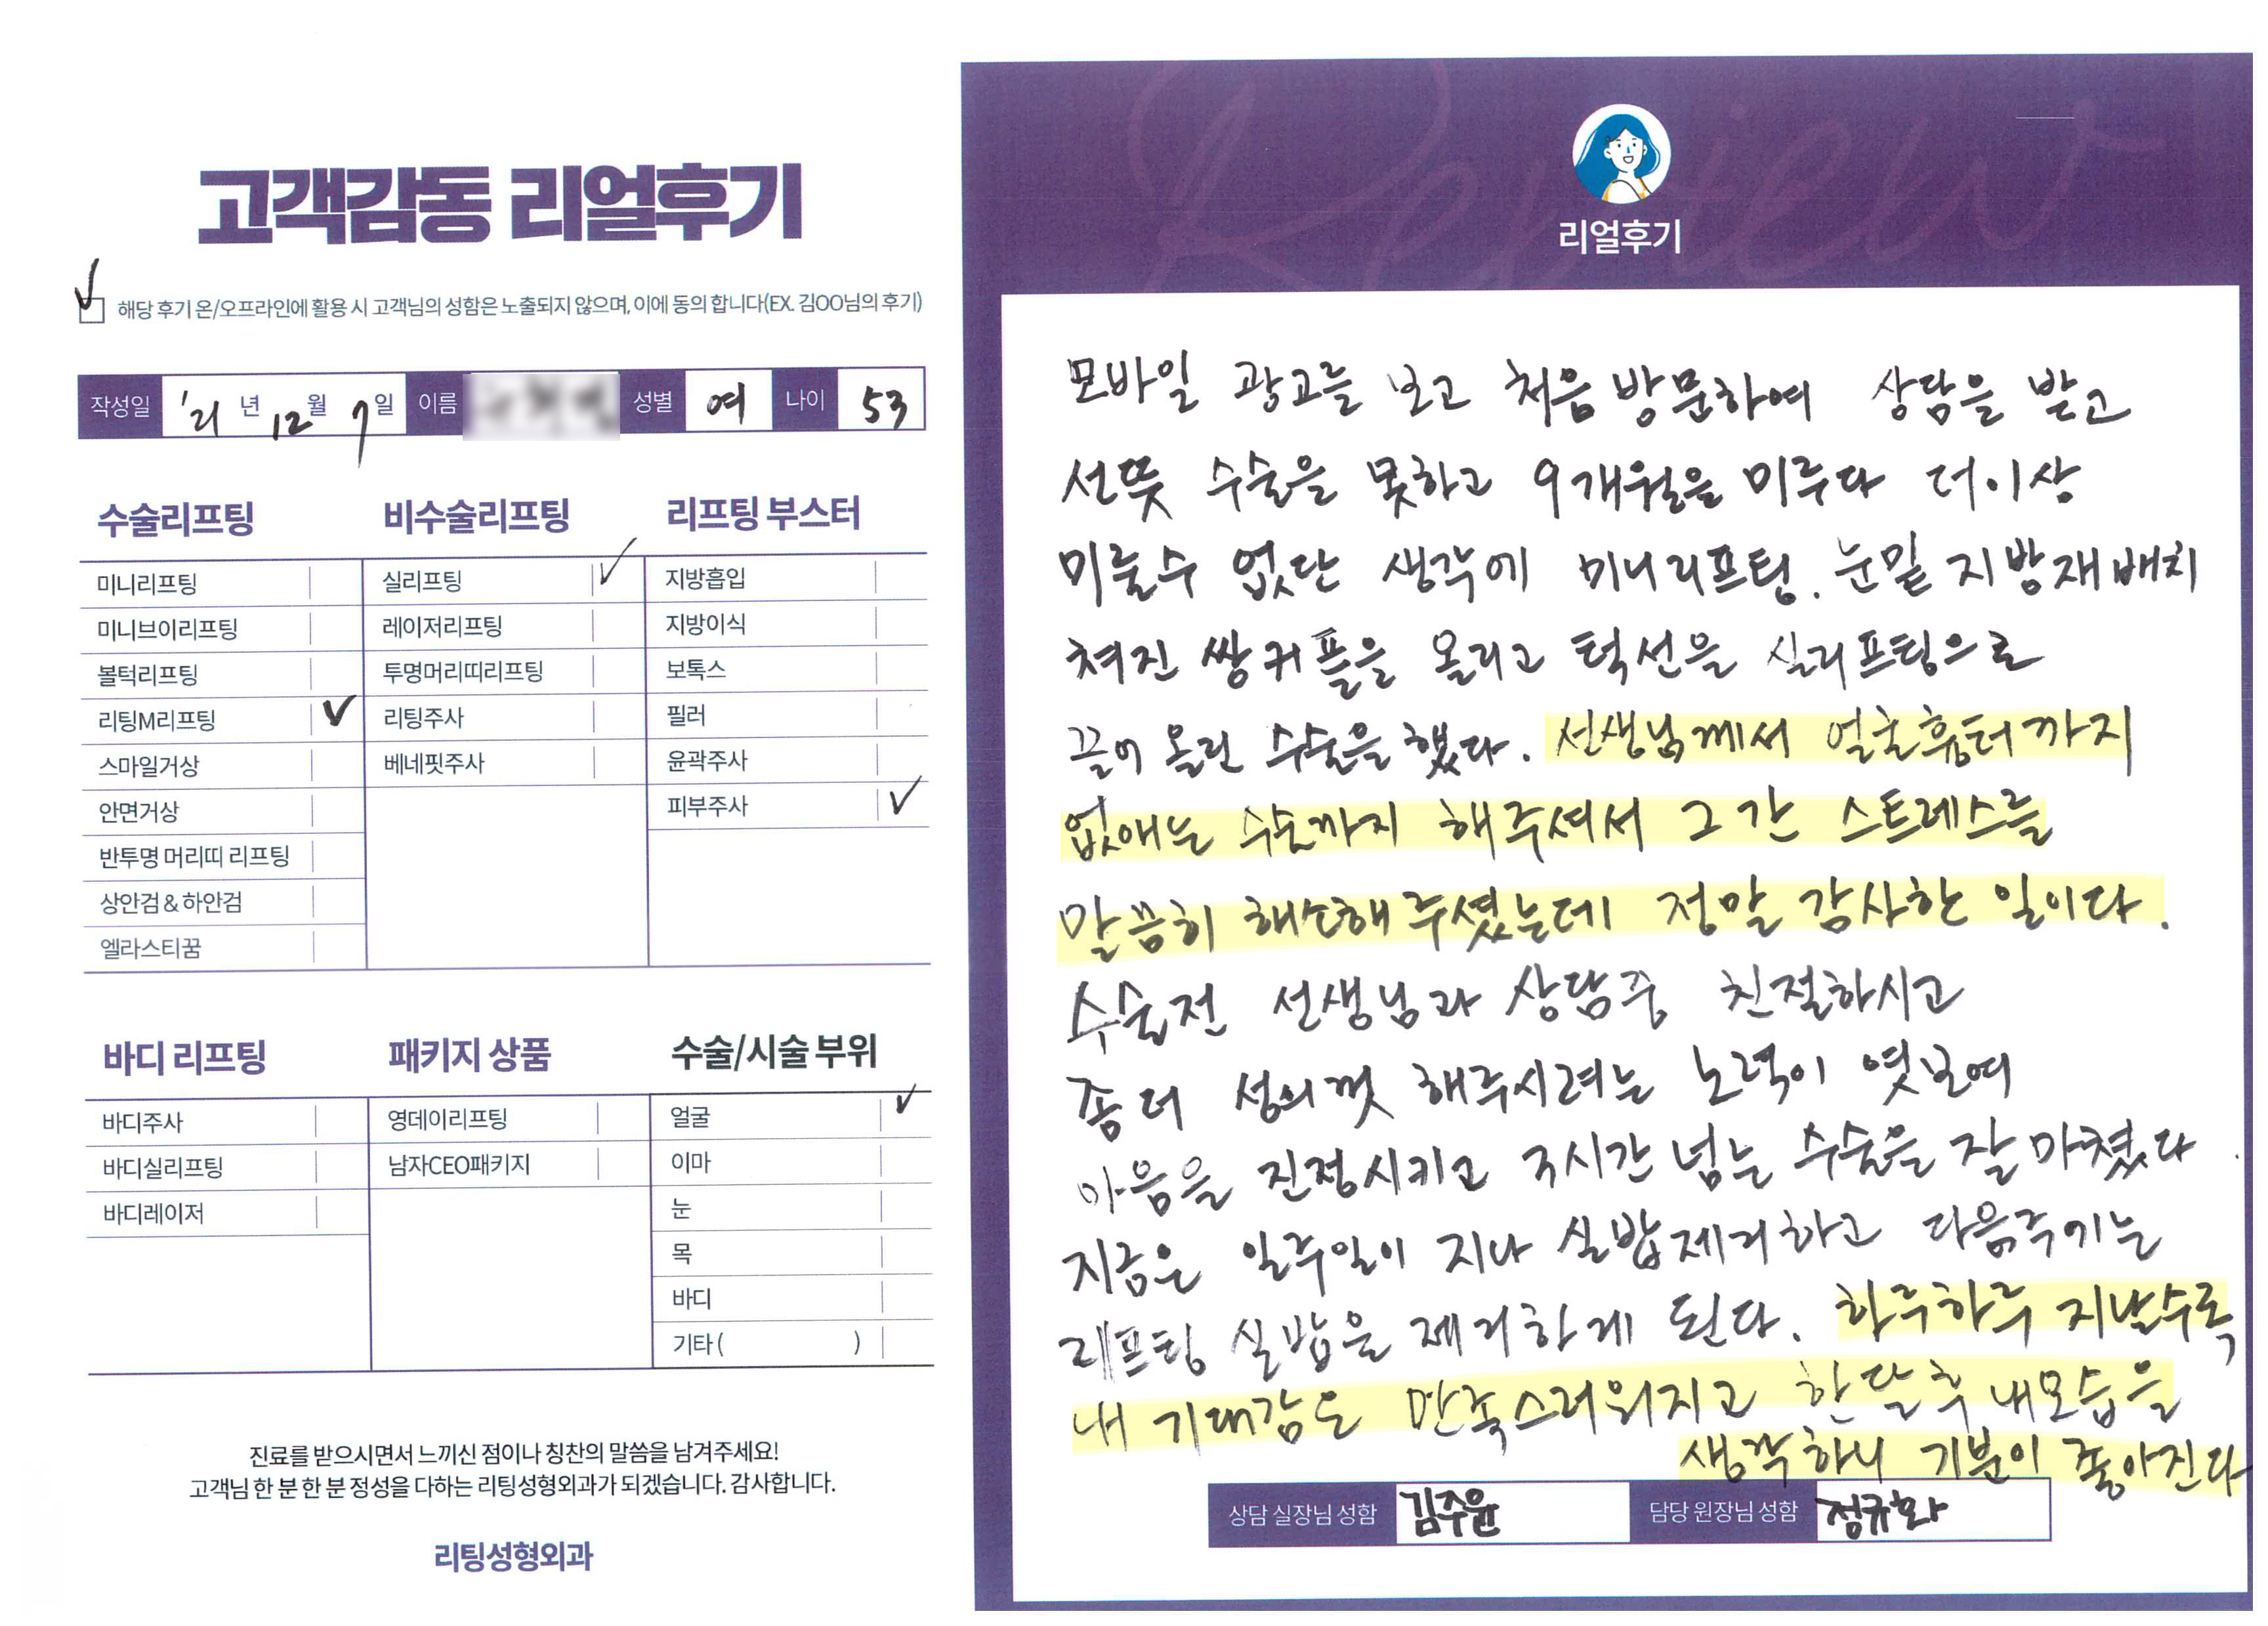 고객감동 리얼후기
해당 후기 온/오프라인에 활용 시 고객님의 성함은 노출되지 않으며, 이에 동의 합니다(EX. 김OO님의 후기)
작성일 '21 년 12 월 7 일 이름 성별 여 나이 53
수술리프팅
미니리프팅
미니브이리프팅
볼턱리프팅
리팅M리프팅
스마일거상
안면거상
반투명 머리띠 리프팅
상안검 & 하안검
엘라스티꿈
비수술리프팅
실리프팅
레이저리프팅
투명머리띠리프팅
리팅주사
베네핏주사
리프팅 부스터
지방흡입
지방이식
보톡스
필러
윤곽주사
피부주사
바디 리프팅
바디주사
바디실리프팅
바디레이저
패키지 상품
영데이리프팅
남자CEO패키지
수술/시술 부위
얼굴
이마
눈
목
바디
기타 ( )
진료를 받으시면서 느끼신 점이나 칭찬의 말씀을 남겨주세요!
고객님 한 분 한 분 정성을 다하는 리팅성형외과가 되겠습니다. 감사합니다.
리팅성형외과
Review
리얼후기
모바일 광고를 보고 처음 방문하여 상담을 받고
선뜻 수술을 못하고 9개월을 미루다 더이상
미룰수 없단 생각에 미니리프팅. 눈밑 지방재배치
쳐진 쌍커플을 올리고 턱선을 실리프팅으로
끌어 올린 수술을 했다. 선생님께서 얼굴흉터까지
없애는 수술까지 해주셔서 그간 스트레스를
말끔히 해소해 주셨는데 정말 감사한 일이다.
수술전 선생님과 상담중 친절하시고
좀더 성의껏 해주시려는 노력이 엿보여
마음을 진정시키고 3시간 넘는 수술을 잘 마쳤다.
지금은 일주일이 지나 실밥제거하고 다음주기는
리프팅 실밥을 제거하게 된다. 하루하루 지날수록
내 기대감도 만족스러워지고 한달후 내모습을
생각하니 기분이 좋아진다
상담 실장님 성함 김주윤 담당 원장님 성함 정규화